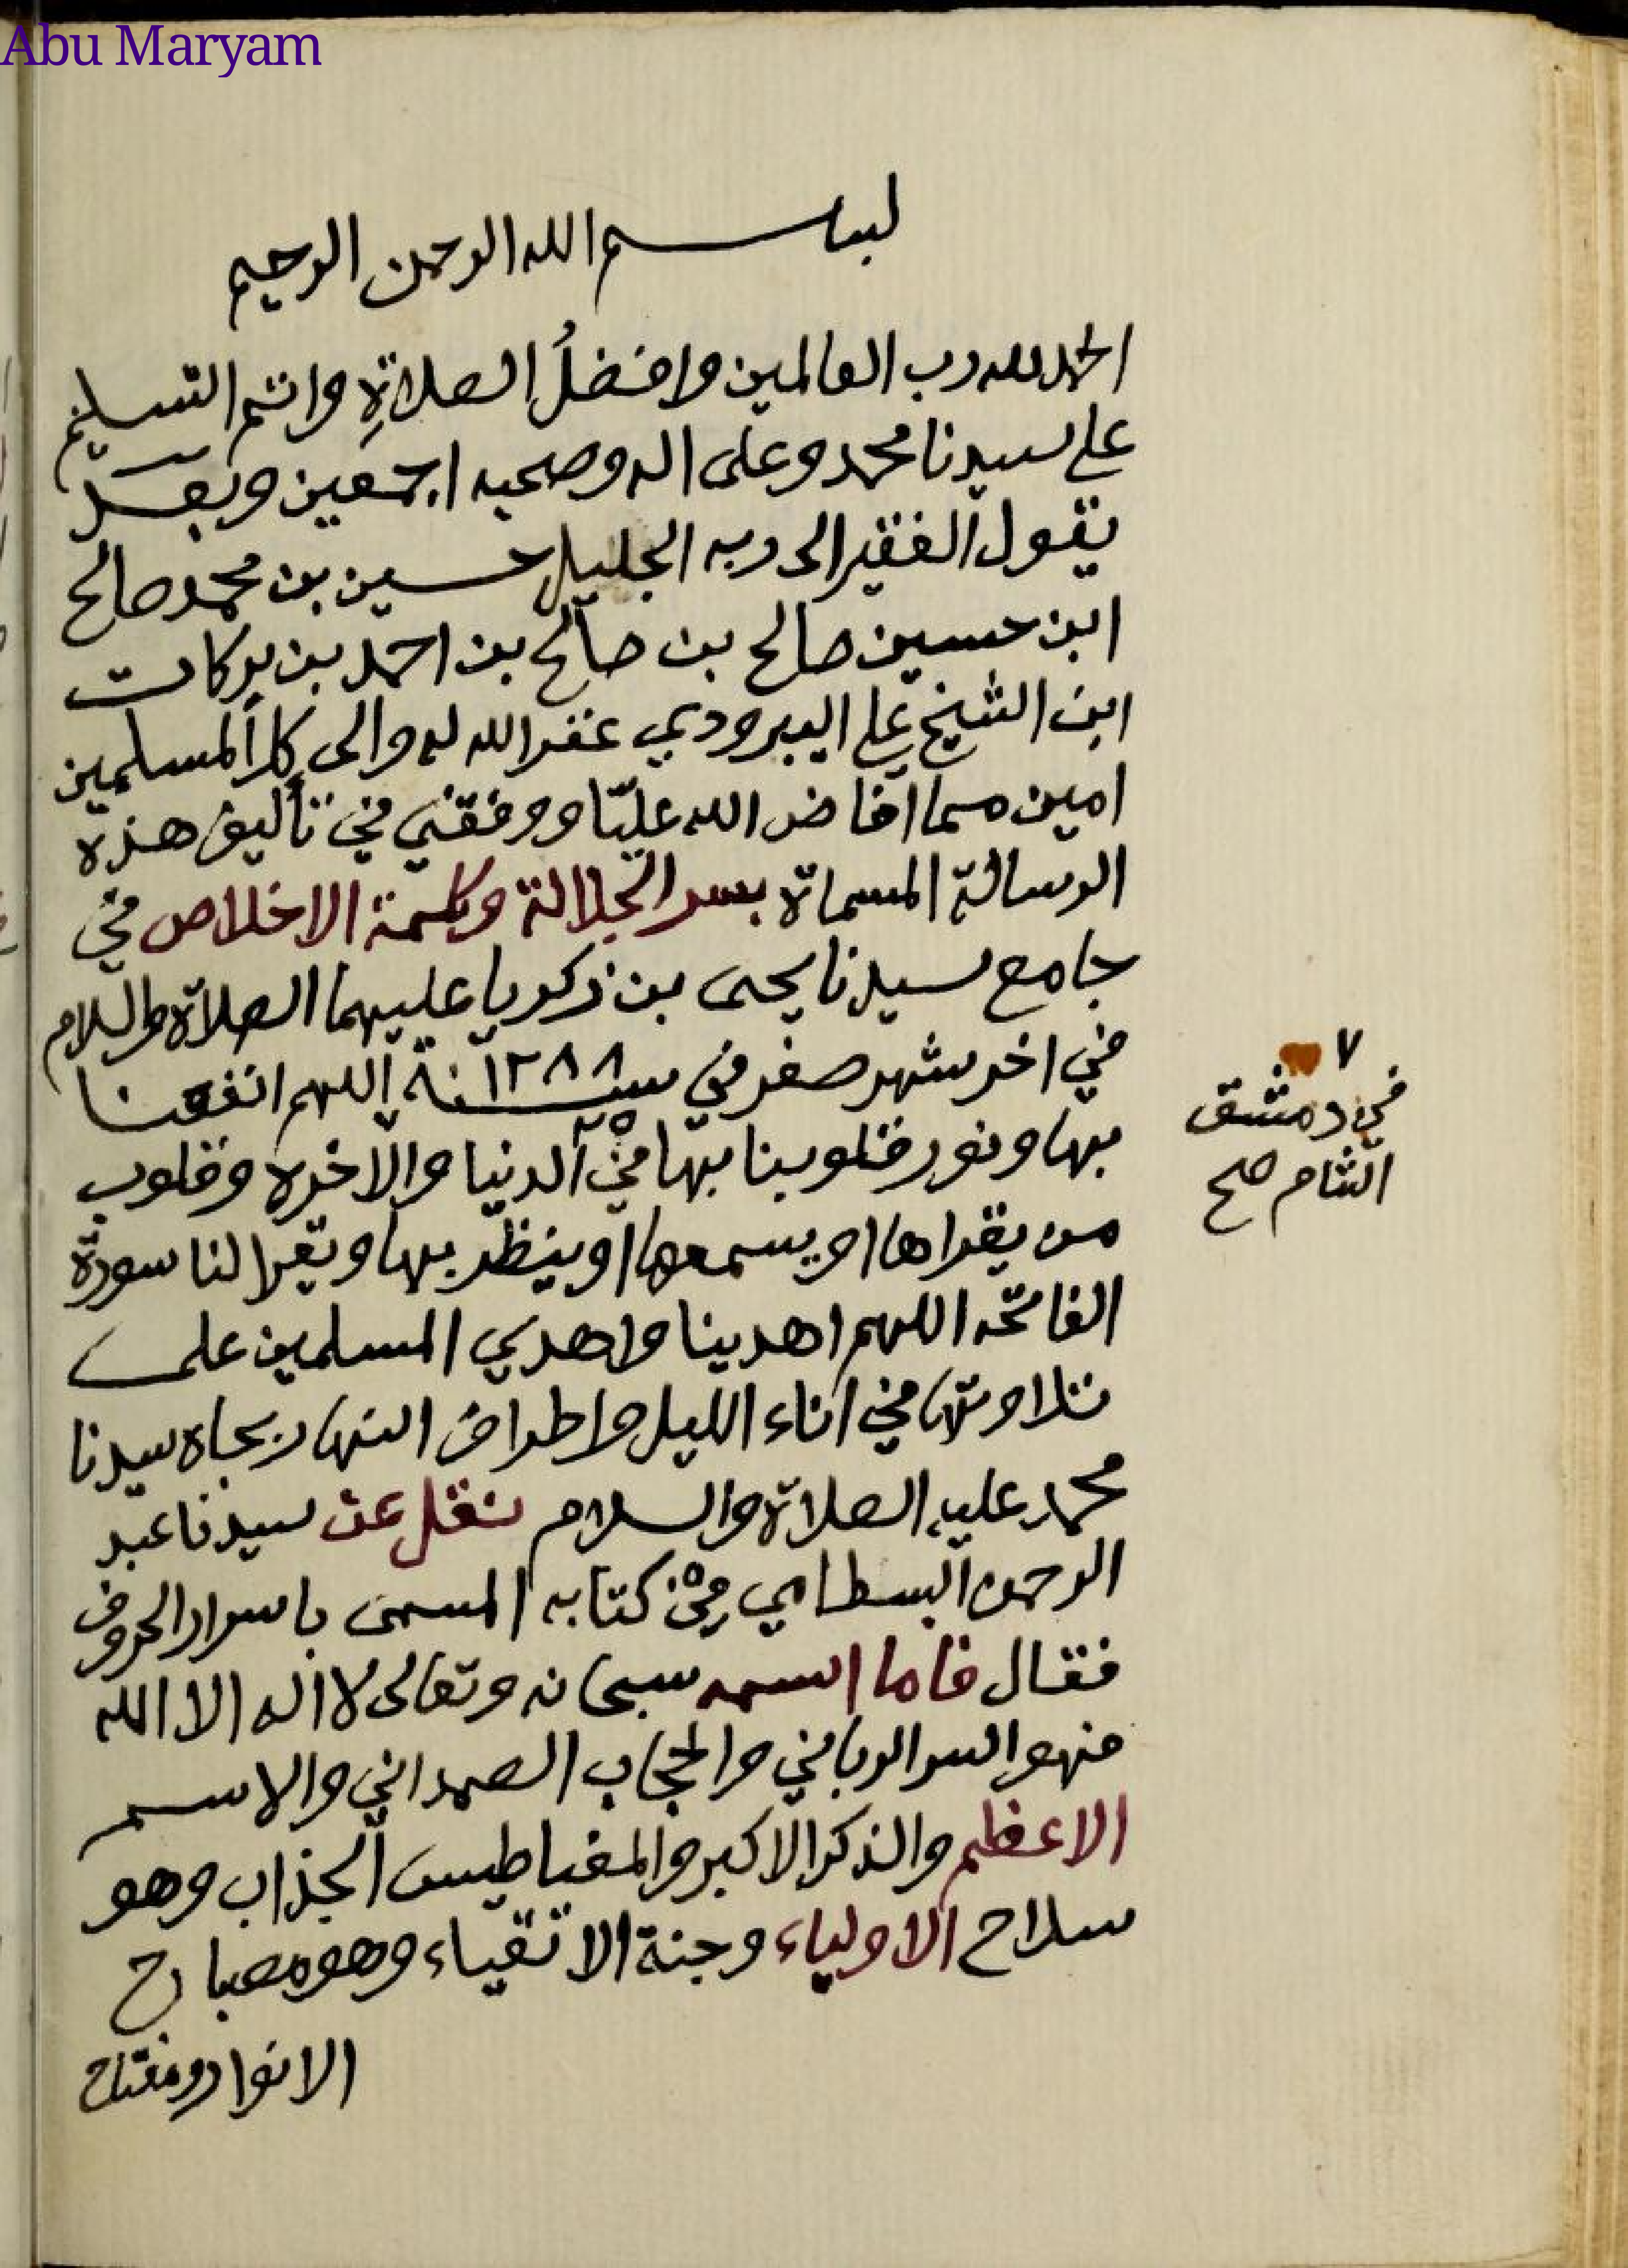 Abu Maryam
بسم الله الرحمن الرحيم
الحمد لله رب العالمين وافضلُ الصلاةِ واتم التسليم
على سيدنا محمد وعلى اله وصحبه اجمعين وبعد
يقول الفقير الى ربه الجليل حسين بن محمد صالح
ابن حسين صالح بن صالح بن احمد بن بركات
ابن الشيخ علي اليبرودي غفر الله له والى كل المسلمين
امين مما افاض الله علينا ووفقني في تأليف هذه
الرسالة المسماة بسر الجلالة وكلمة الاخلاص في
جامع سيدنا يحى بن زكريا عليهما الصلاة والسلام
في اخر شهر صفر في سنة ١٢٨٨ اللهم انفعنا
بها ونور قلوبنا بها في الدنيا والاخره وقلوب
من يقراها او يسمعها او ينظر بها ويقرا لنا سورة
الفاتحه اللهم اهدينا واهدي المسلمين على
تلاوتها في اناء الليل واطراف النهار بجاه سيدنا
محمد عليه الصلاة والسلام نقل عن سيدنا عبد
الرحمن البسطامي في كتابه المسمى باسرار الحروف
فقال فاما اسمه سبحانه وتعالى لا اله الا الله
فهو السر الرباني والحجاب الصمداني والاسم
الاعظم والذكر الاكبر والمغناطيس الجذاب وهو
سلاح الاولياء وجنة الاتقياء وهو مصباح
الانوار ومفتاح
٧
في دمشق
الشام صح